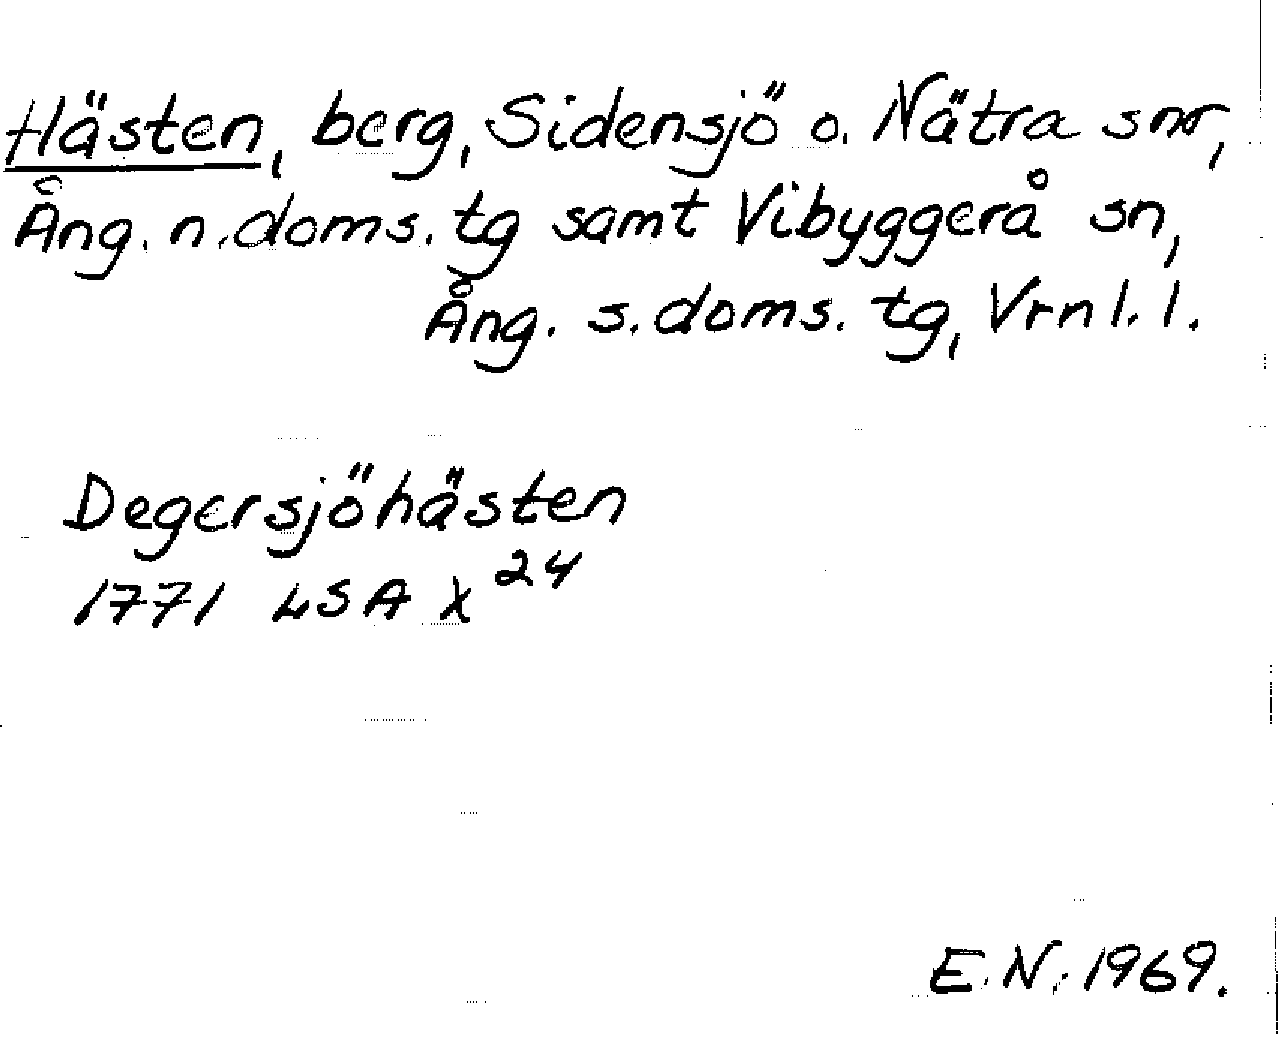 Hästen, berg, Sidensjö o. Nätra snr,
Ång. n. doms. tg samt Vibyggerå sn,
Ång. s. doms. tg, Vrnl. l.
Degersjöhästen
1771 LSA X 24
E. N. 1969.